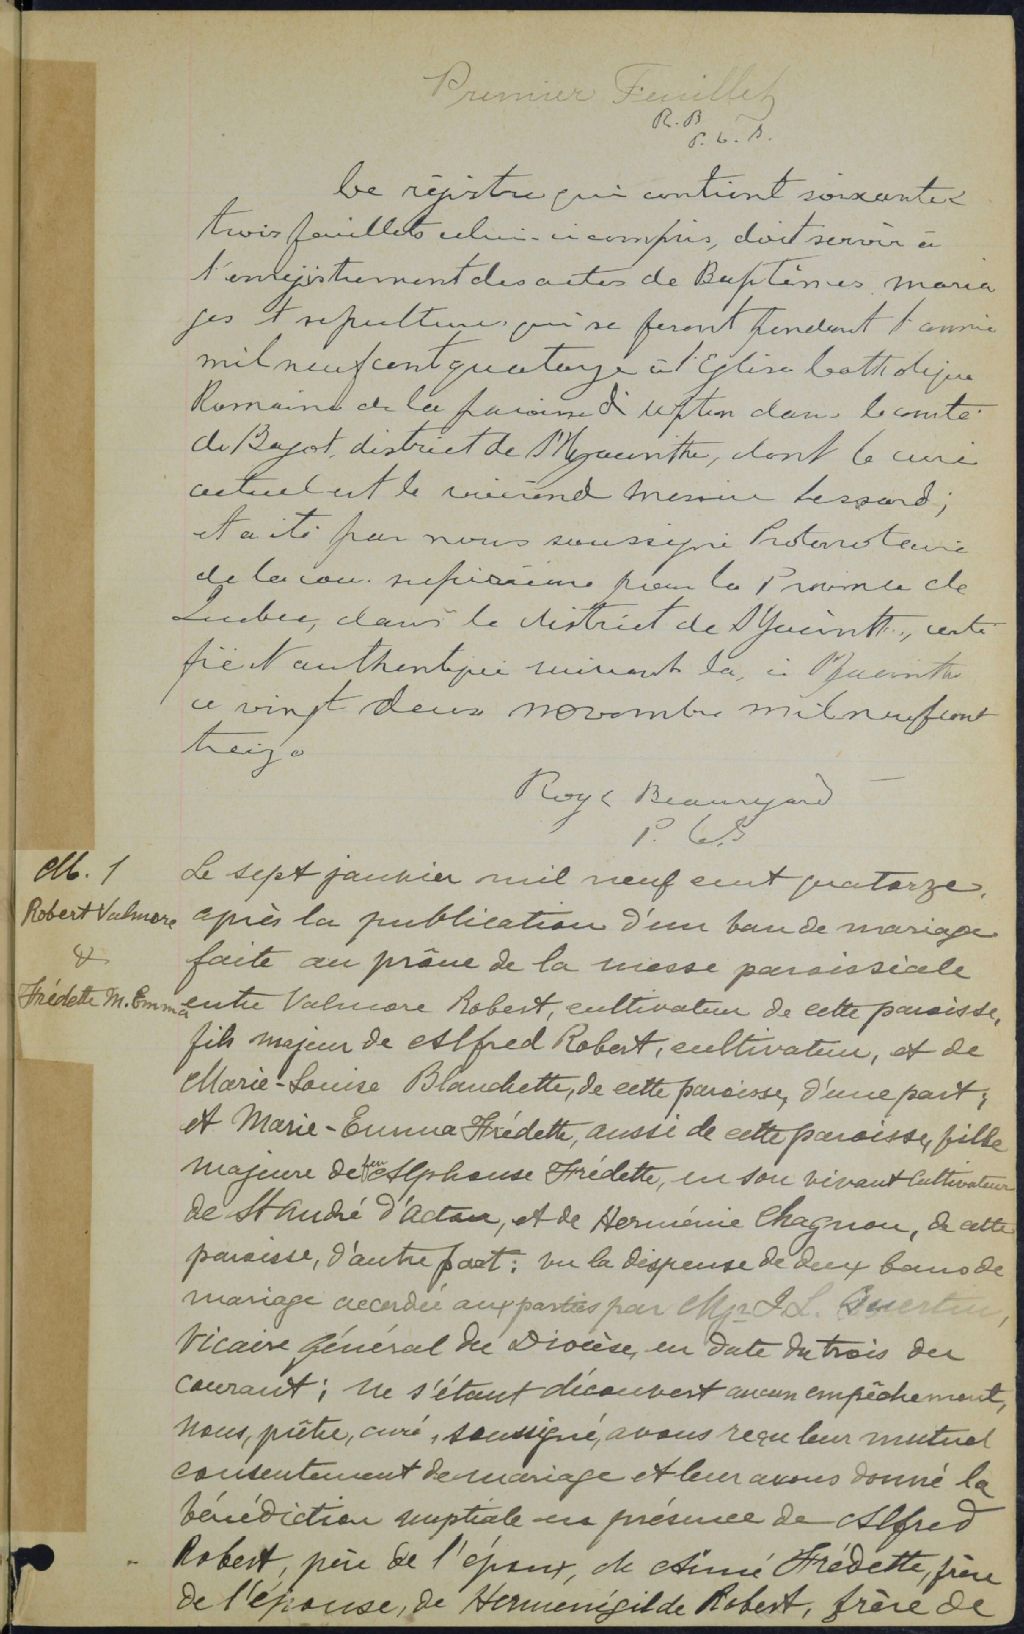 Premier Feuillet
R. B
P. C. S.
Ce régistre qui contient soixante &
trois feuillets celui-ci compris, doit servir à
l'enregistrement des actes de Baptêmes, maria
ges & sepultures qui se feront pendant l'année
mil neuf cent quatorze à l'Eglise Catholique
Romaine de la paroisse d'Upton dans le comté
de Bagot, district de St Hyacinthe, dont le curé
actuel est le révérend Messire Lessard;
et a été par nous soussigné Protonotaire
de la cour supérieure pour la Province de
Québec, dans le district de St Hyacinthe, certi
fié & authentiqué suivant la loi, à St Hyacinthe
ce vingt deux novembre mil neuf cent
treize
Roy & Beauregard
P. C. S
M. 1
Robert Valmore
&
Frédette M. Emma
Le sept janvier mil neuf cent quatorze,
après la publication d'un ban de mariage
faite au prône de la messe paroissiale
entre Valmore Robert, cultivateur de cette paroisse,
fils majeur de Alfred Robert, cultivateur, et de
Marie-Louise Blanchette, de cette paroisse, d'une part;
et Marie-Emma Frédette, aussi de cette paroisse, fille
majeure de feu Alphonse Frédette, en son vivant cultivateur
de St André d'Acton, et de Herménie Chagnon, de cette
paroisse, d'autre part: vu la dispense de deux bans de
mariage accordée aux parties par Mgr J. L. Guertin,
Vicaire Général du Diocèse, en date du trois du
courant; ne s'étant découvert aucun empêchement,
Nous, prêtre, curé, soussigné, avons reçu leur mutuel
consentement de mariage et leur avons donné la
bénédiction nuptiale en présence de Alfred
Robert, père de l'époux, de Aimé Frédette, frère
de l'épouse, de Herménigilde Robert, frère de